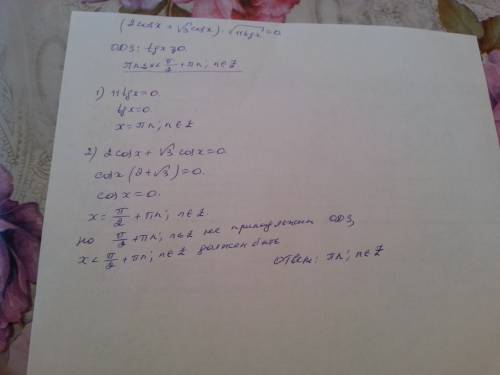 (2cosx + √3 cosx)·√11tgx = 0
ОДЗ: tgx ≥ 0.
πn ≤ x < π/2 + πn; n∈Z
1) 11tgx = 0.
tgx = 0.
x = πn; n∈Z
2) 2cosx + √3 cosx = 0.
cosx (2+√3) = 0.
cosx = 0.
x = π/2 + πn; n∈Z.
но π/2 + πn; n∈Z не принадлежит ОДЗ,
x < π/2 + πn; n∈Z должен быть
ответ: πn; n∈Z